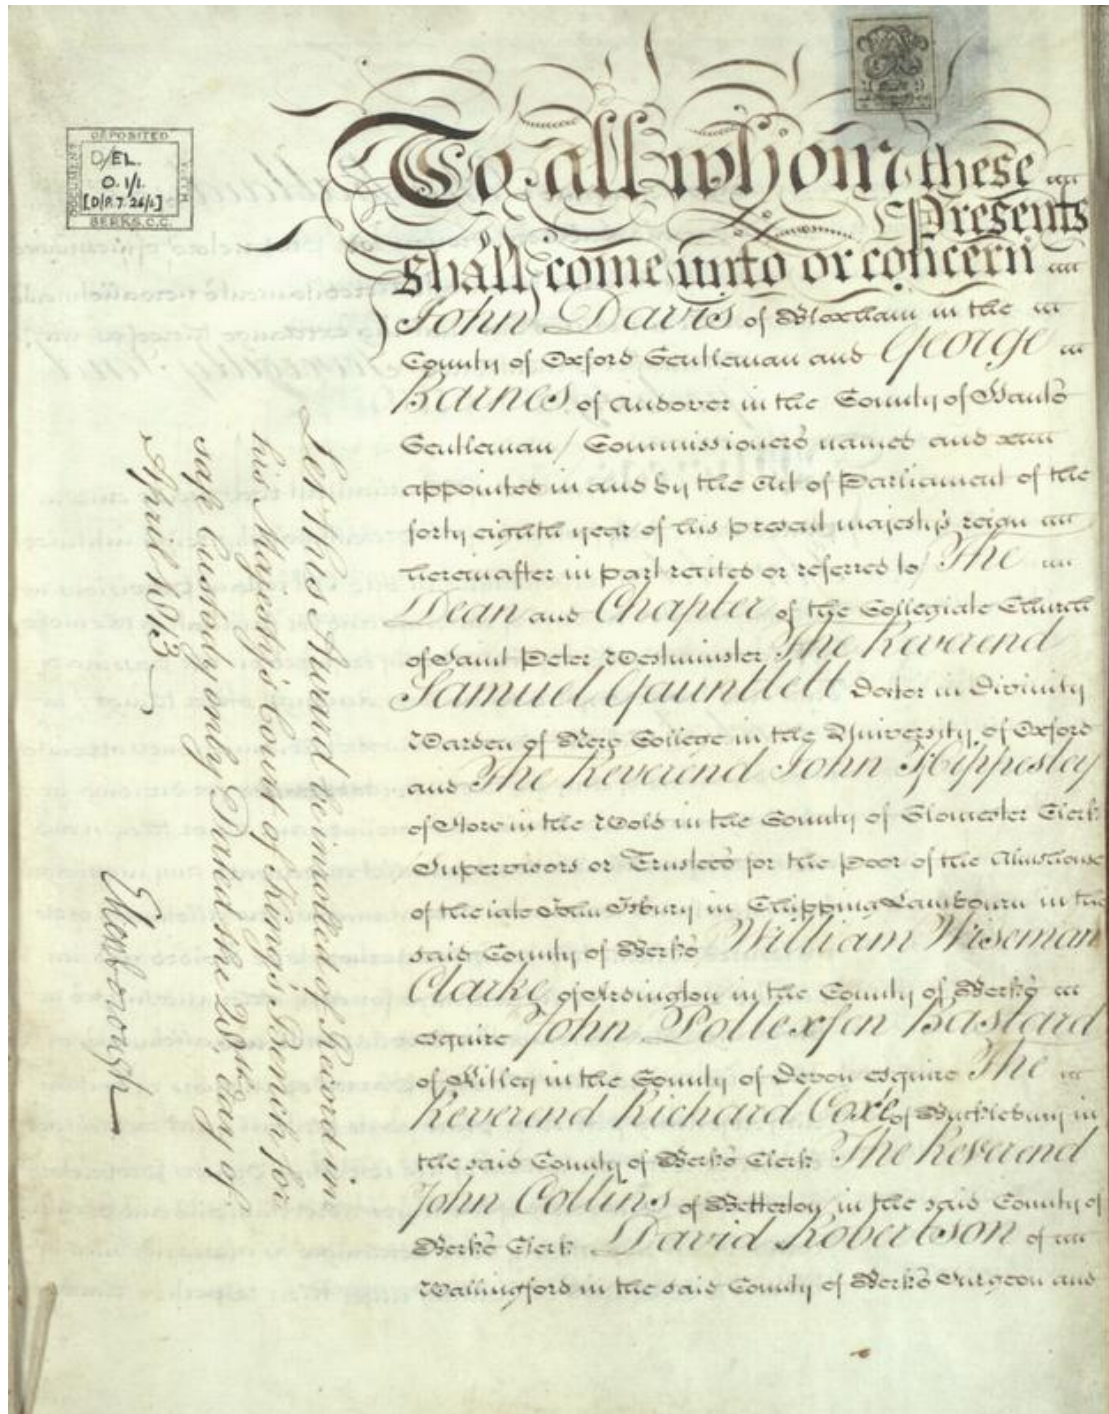 DEPOSITED
DOCUMENT
D/EL.
O. 1/1.
[D/P. 7. 26/1]
BERKS. C.C.
To all whom these
Presents
shall come unto or concern
John Davis of Bloxham in the
County of Oxford Gentleman and George
Barnes of Andover in the County of Hants
Gentleman / Commissioners named and
appointed in and by the Act of Parliament of the
forty eighth year of his present majesty's reign
hereinafter in part recited or referred to / The
Dean and Chapter of the Collegiate Church
of Saint Peter Westminster The Reverend
Samuel Gauntlett Doctor in Divinity
Warden of New College in the University of Oxford
and The Reverend John Hippesley
of Stow in the Wold in the County of Gloucester Clerk
Supervisors or Trustees for the Poor of the Almshouse
of the late John Isbury in Chipping Lambourn in the
said County of Berks William Wiseman
Clarke of Ardington in the County of Berks
esquire John Pollexfen Bastard
of Kitley in the County of Devon esquire The
Reverend Richard Coxe of Bucklebury in
the said County of Berks Clerk The Reverend
John Collins of Betterton in the said County of
Berks Clerk David Robertson of
Wallingford in the said County of Berks Surgeon and
Let this Award be inrolled of Record in
his Majesty's Court of King's Bench for
safe Custody only Dated the 28th day of
April 1813
Ellenborough